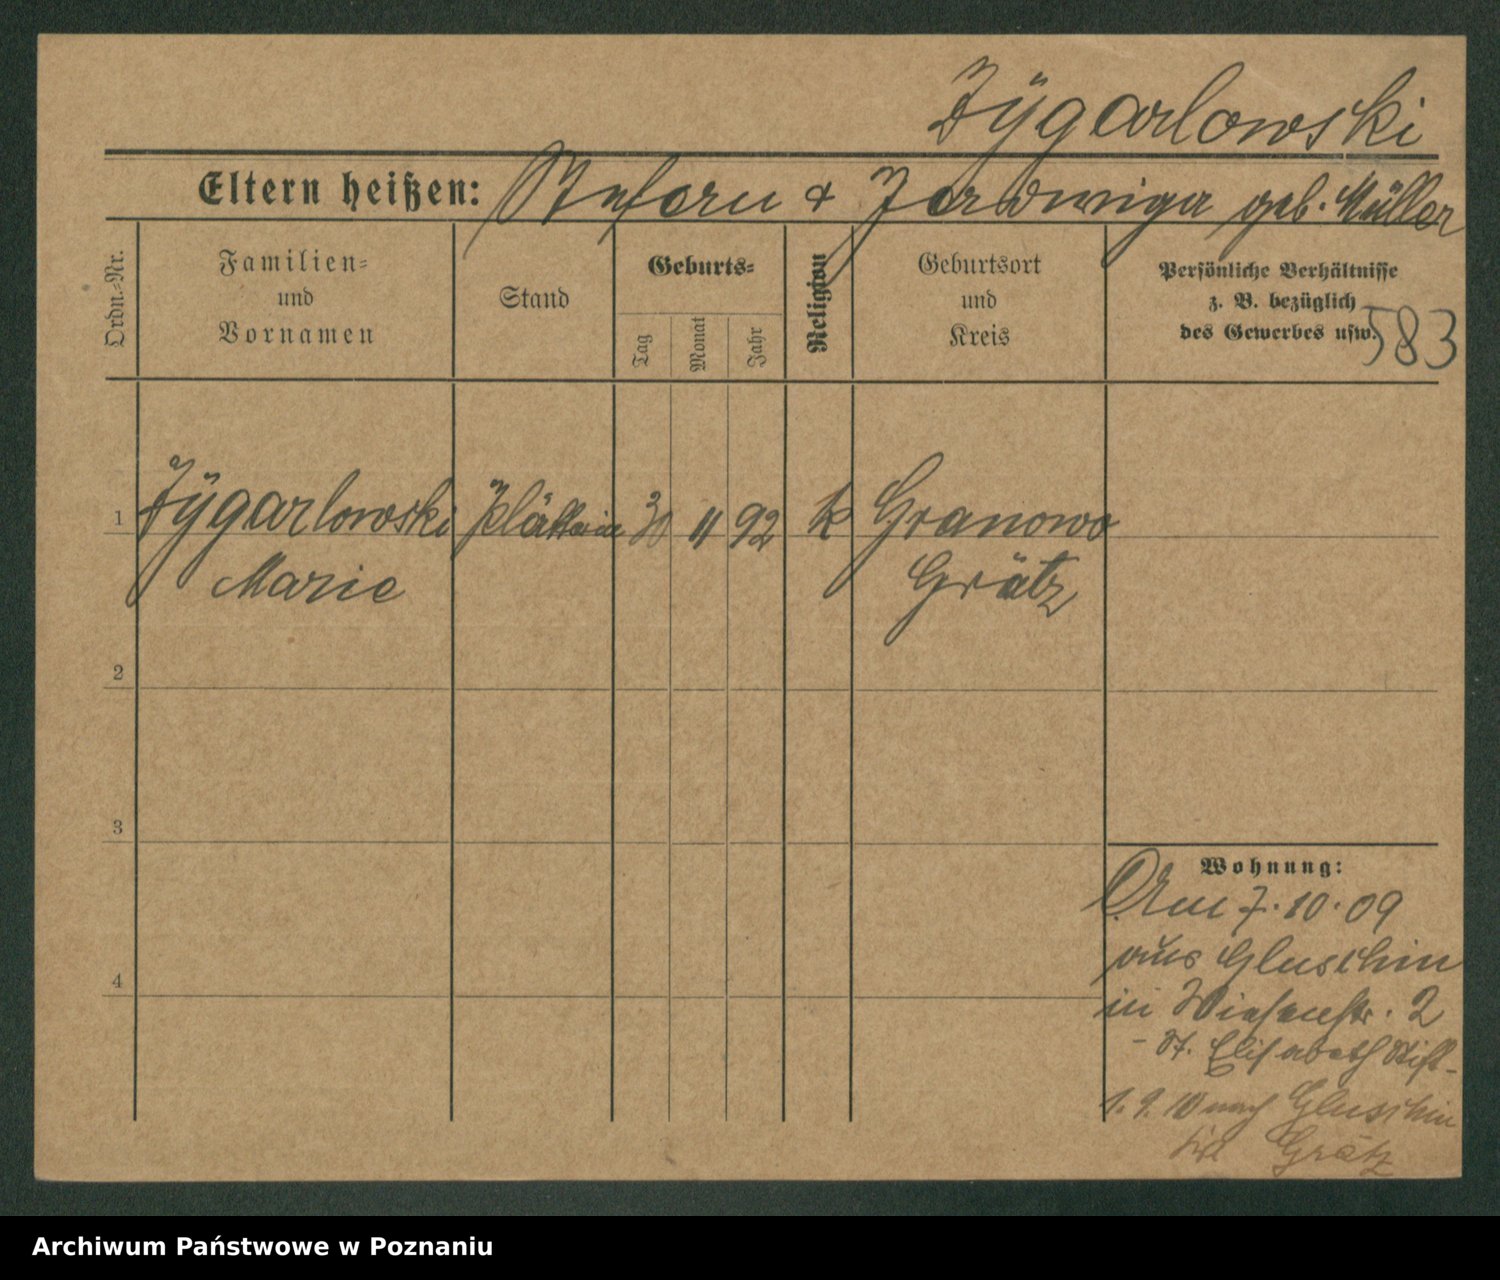 Zÿgarlowski
Eltern heißen: Stefan & Jadwiga geb. Müller
Ordn.-Nr.
Familien-
und
Vornamen
Stand
Geburts-
Tag
Monat
Jahr
Religion
Geburtsort
und
Kreis
Persönliche Verhältnisse
z. B. bezüglich
des Gewerbes usw.
583
1 Zÿgarlowski Plätterin 30 11 92 k Granowo
Marie Grätz
2
3
Wohnung:
Am 7.10.09
aus Gluschin
4
in Wiesenstr. 2
- St. Elisabeth Stift -
1.9.10 nach Gluschin
Grätz
Archiwum Państwowe w Poznaniu